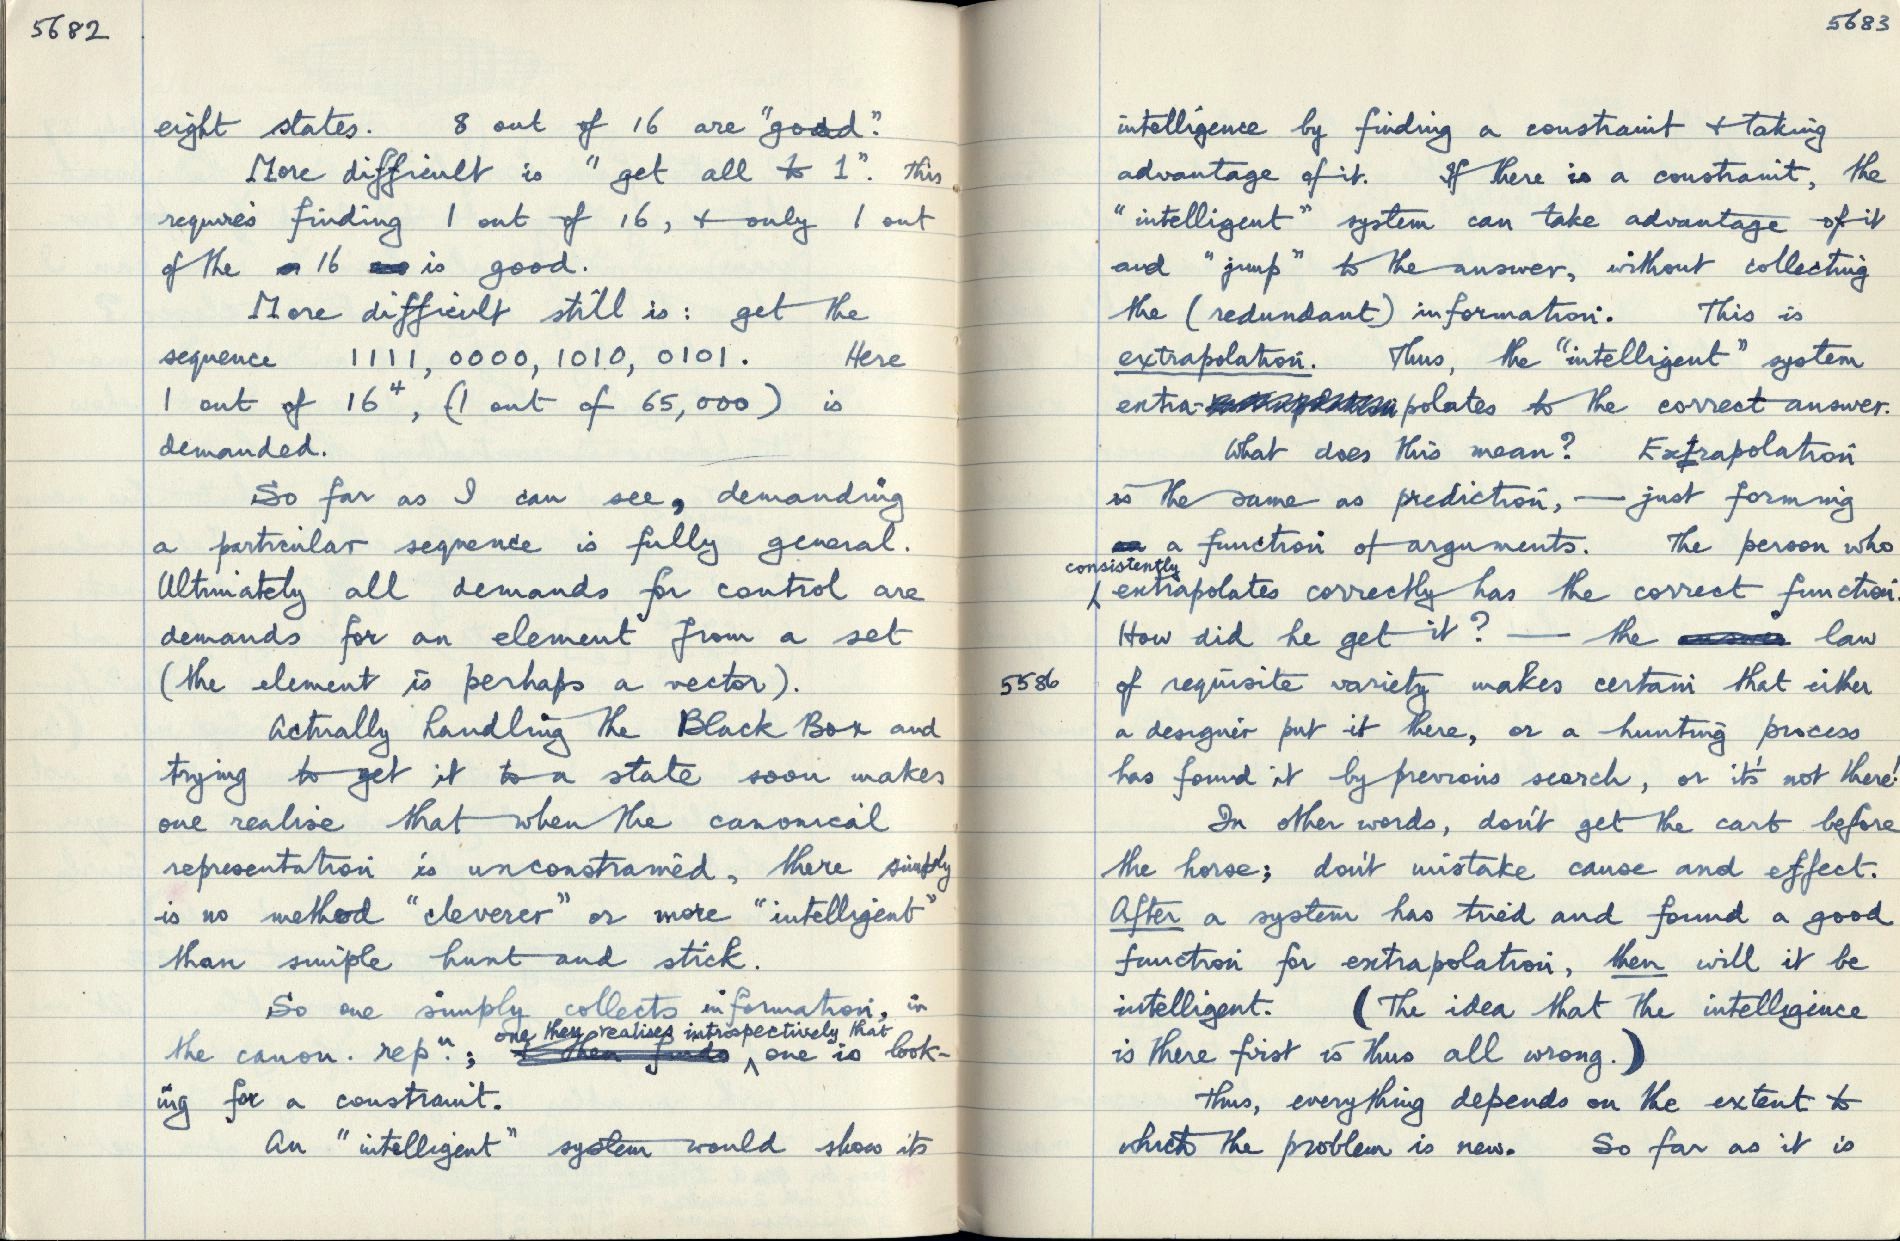 5682
eight states. 8 out of 16 are "good".
More difficult is "get all to 1". This
requires finding 1 out of 16, & only 1 out
of the 16 is good.
More difficult still is: get the
sequence 1111, 0000, 1010, 0101. Here
1 out of 16⁴, (1 out of 65,000) is
demanded.
So far as I can see, demanding
a particular sequence is fully general.
Ultimately all demands for control are
demands for an element from a set
(the element is perhaps a vector).
Actually handling the Black Box and
trying to get it to a state soon makes
one realise that when the canonical
representation is unconstrained, there simply
is no method "cleverer" or more "intelligent"
than simple hunt and stick.
So one simply collects information, in
the canon. repⁿ.; one then realises introspectively that one is look-
ing for a constraint.
An "intelligent" system would show its
5683
intelligence by finding a constraint & taking
advantage of it. If there is a constraint, the
"intelligent" system can take advantage of it
and "jump" to the answer, without collecting
the (redundant) information. This is
extrapolation. Thus, the "intelligent" system
extra-polates to the correct answer.
What does this mean? Extrapolation
is the same as prediction, — just forming
a function of arguments. The person who
consistently
extrapolates correctly has the correct function.
How did he get it? — the law
5586 of requisite variety makes certain that either
a designer put it there, or a hunting process
has found it by previous search, or it's not there!
In other words, don't get the cart before
the horse; don't mistake cause and effect.
After a system has tried and found a good
function for extrapolation, then will it be
intelligent. (The idea that the intelligence
is there first is thus all wrong.)
Thus, everything depends on the extent to
which the problem is new. So far as it is